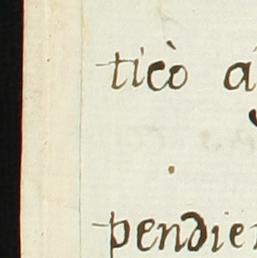 ticò a
pendien